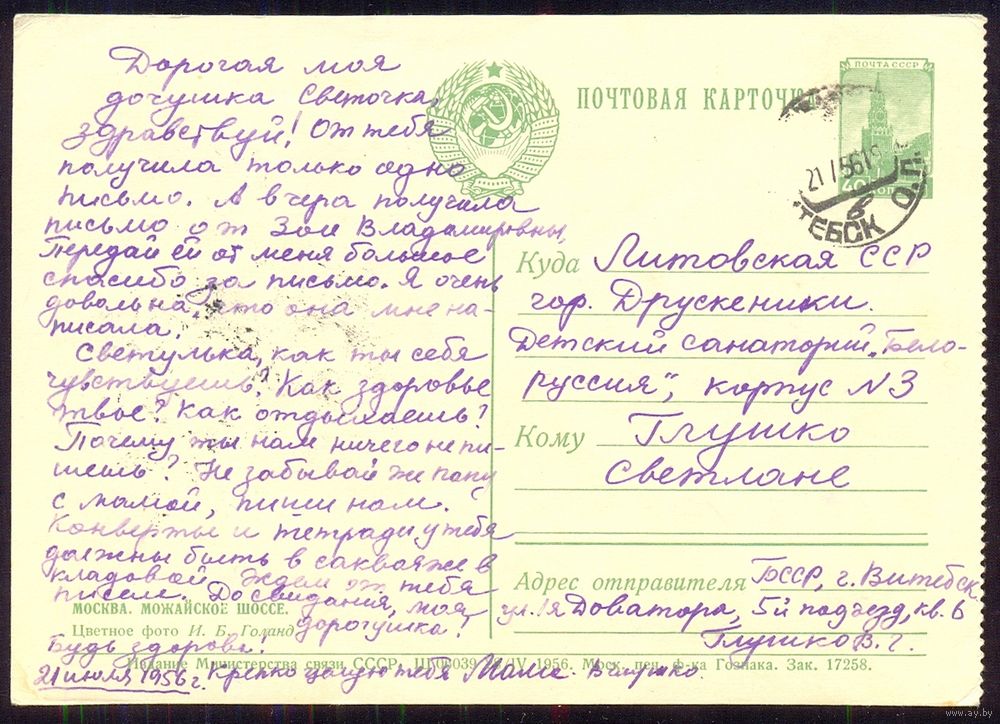 Дорогая моя
дочушка Светочка,
здравствуй! От тебя
получила только одно
письмо. А вчера получила
письмо от Зои Владимировны,
Передай ей от меня большое
спасибо за письмо. Я очень
довольна, что она мне на-
писала.
Светулька, как ты себя
чувствуешь? Как здоровье
твое? Как отдыхаешь?
Почему ты нам ничего не пи-
шешь? Не забывай же папу
с мамой, пиши нам.
Конверты и тетради у тебя
должны быть в саквояже в
кладовой. Ждем от тебя
писем. До свидания, моя
дорогушка!
Будь здорова!
21 июля 1956 г. Крепко целую тебя
МОСКВА. МОЖАЙСКОЕ ШОССЕ.
Цветное фото И. Б. Голанд
ПОЧТОВАЯ КАРТОЧКА
ПОЧТА СССР
40 КОП
21 7 56
ИТЕБСК
Куда Литовская ССР
гор. Друскеники.
Детский санаторий „Бело-
руссия“, корпус N 3
Кому Глушко
Светлане
Адрес отправителя БССР, г. Витебск
ул. 1я Доватора, 5й подъезд, кв. 6
Глушко В. Г.
Издание Министерства связи СССР. IV 1956. Моск. печ. ф-ка Гознака. Зак. 17258.
www.ay.by